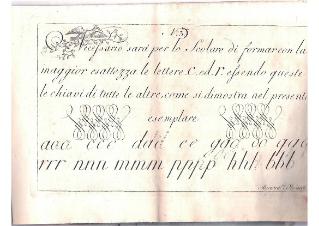 Necessario sarà per lo Scolare di formar con la
maggior esattezza le lettere C. ed I. essendo queste
le chiavi di tutte le altre, come si dimostra nel presente
esemplare
aco ccc dao ce gao do qao
rrr nnn mmm pppp hhl bbl